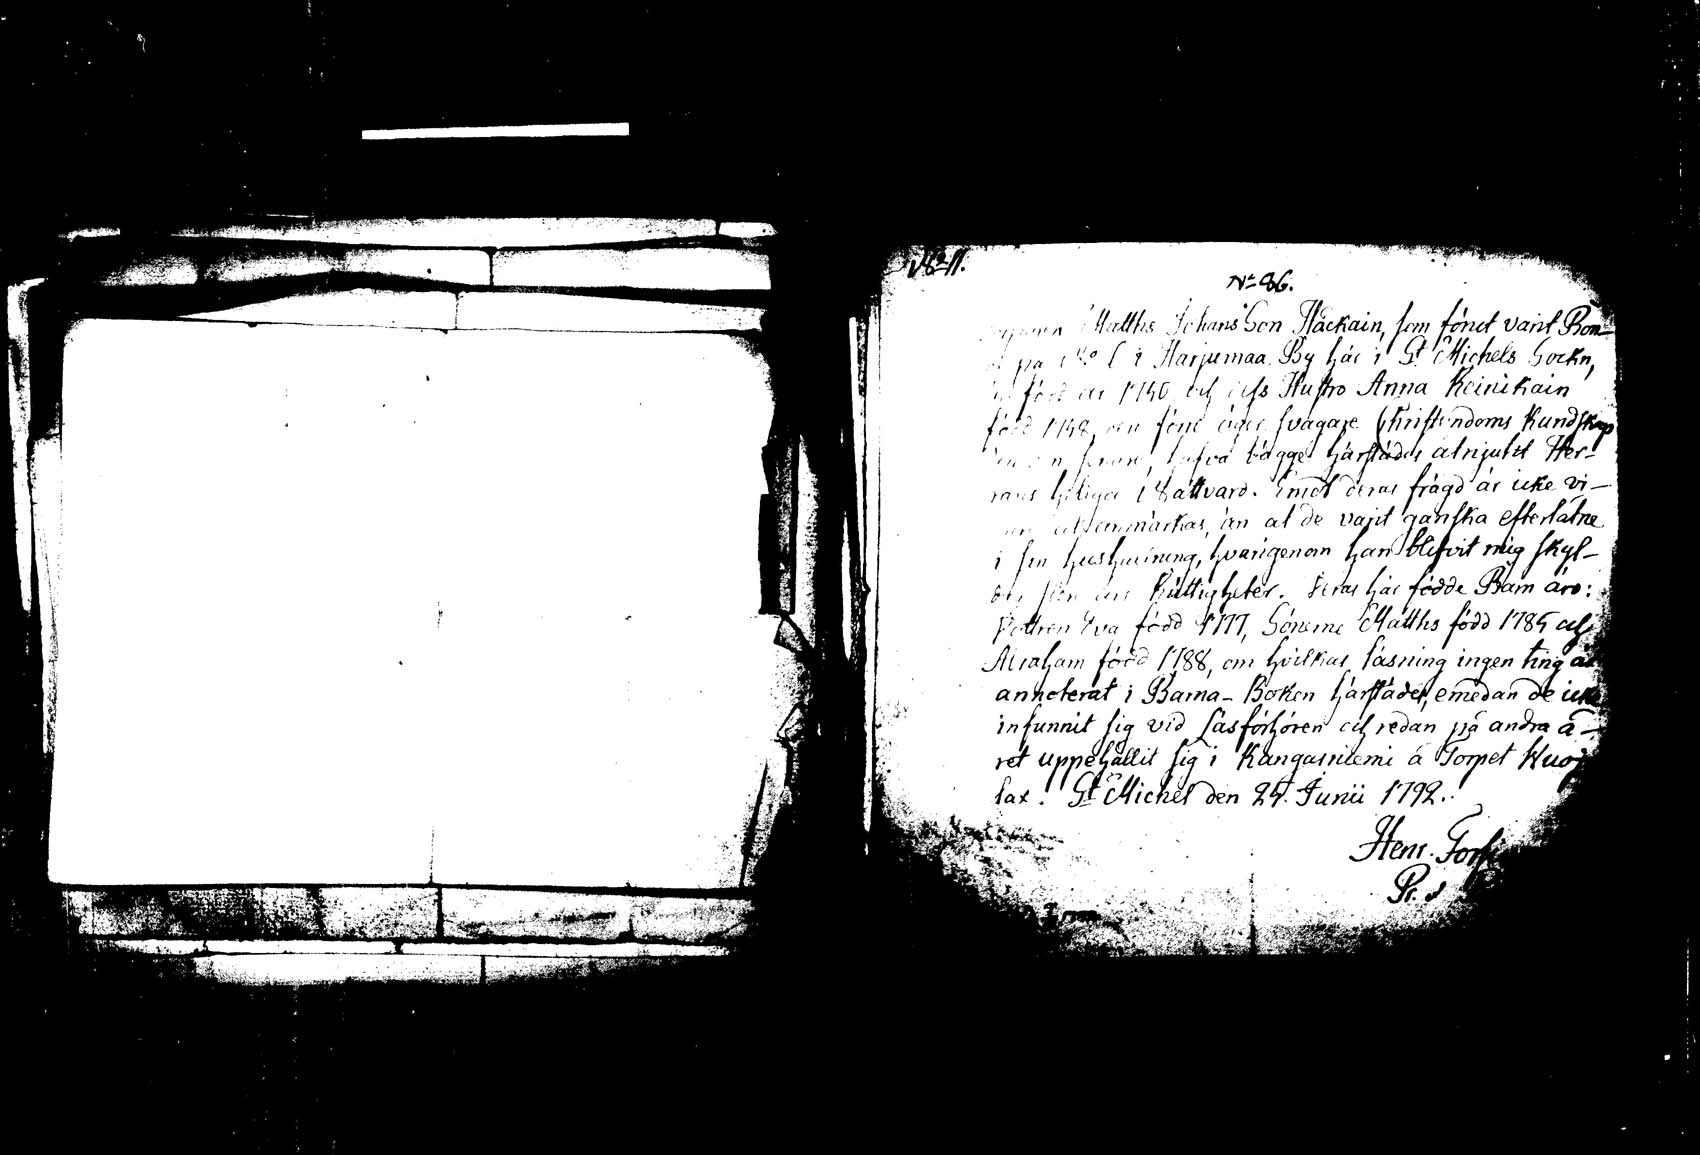 No 11.
No 86.
Matths Johans Son Häckain, som förut varit Bon-
på No 1 i Harjumaa By här i St Michels Sockn,
född år 1740 och dess Hustro Anna Reinikain
född 1748, den förre äger svagare Christendoms Kundskap
hafva bägge härstädes åtnjutit Her-
rans heliga Nattvard. Emot deras frägd är icke vi-
anmärkas, än at de varit ganska efterlåtne
i sin hushållning, hvarigenom han blifvit mig skyl-
Rättigheter. Deras här födde Barn äro:
Dottren Eva född 1777, Sönerne Matths född 1785 och
Abraham född 1788, om hvilkas läsning ingen ting är
annoterat i Barna-Boken härstädes, emedan de icke
infunnit sig vid Läsförhören och redan på andra å-
ret uppehållit sig i Kangasniemi å Torpet
lax. St Michel den 24. Junii 1792.
Henr.